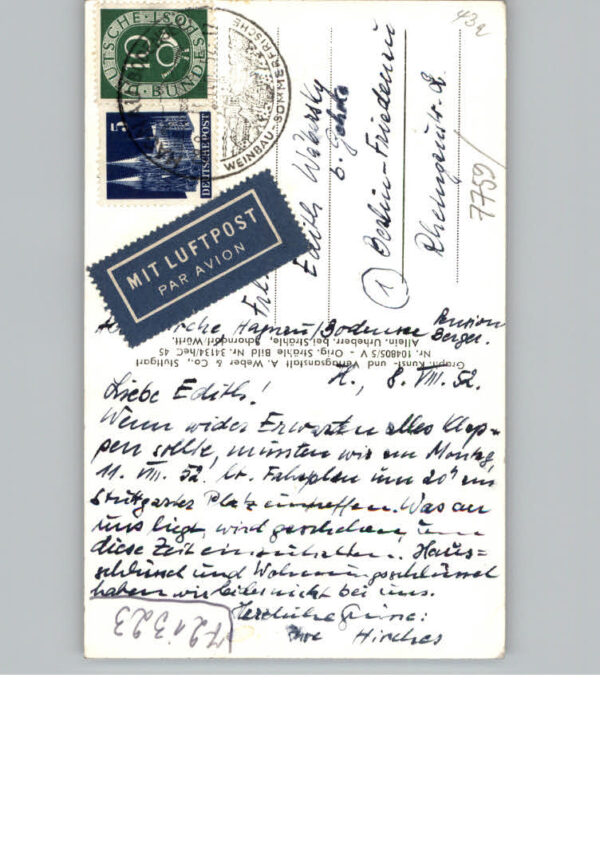 43a
10
DEUTSCHE
BUNDESPOST
5
DEUTSCHE POST
WEINBAU-SOMMERFRISCHE
MIT LUFTPOST
PAR AVION
Edith
b.
① Berlin-Friedenau
Rheingaustr. 2.
7759/
Hagnau/Bodensee Pension
Berger.
Graph. Kunst- und Verlagsanstalt A. Weber & Co., Stuttgart
Nr. 10480S/5 V. Orig. Strähle Bild Nr. 34134/hEC 45
Allein. Urheberr. bei Strähle, Schorndorf/Württ.
H., 8. VIII. 52.
Liebe Edith!
Wenn wider Erwarten alles klap-
pen sollte, müssten wir am Montag,
11. VIII. 52. lt. Fahrplan um 20 am
Stuttgarter Platz eintreffen. Was an
uns liegt, wird geschehen, um
diese Zeit einzuhalten. Haus-
schlüssel und Wohnungsschlüssel
haben wir leider nicht bei uns.
Herzliche Grüsse:
Ihre Hirches